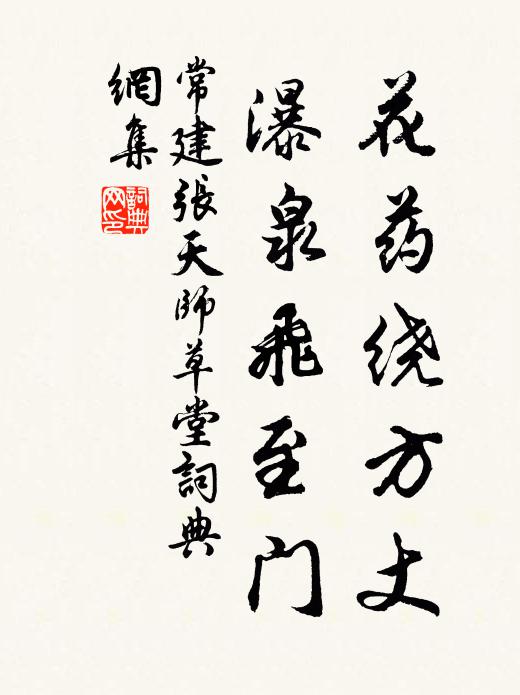 花药绕方丈
瀑泉飛至门
常建張天師草堂詞典
網集
詞典
网印